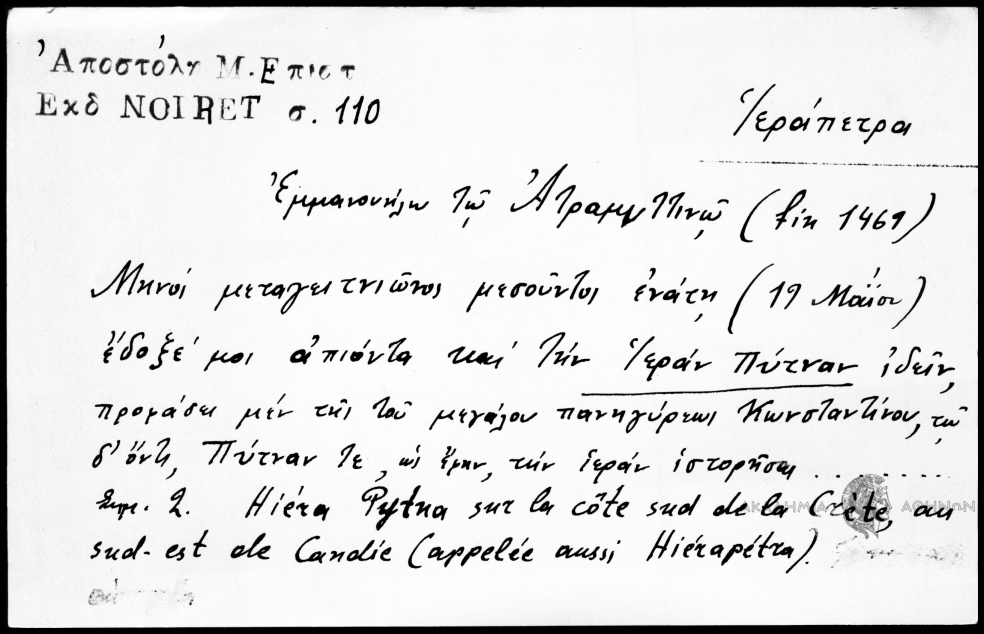 Ἀποστόλη Μ. Επιστ
Εκδ NOIRET σ. 110
Ἱεράπετρα
Ἐμμανουήλω τῷ Ἀτραμυττινῷ (fin 1469)
Μηνός μεταγειτνιῶνος μεσοῦντος ἐνάτῃ (19 Μαΐου)
ἔδοξέ μοι ἀπιόντα καί τήν Ἱεράν Πύτναν ἰδεῖν,
προφάσει μέν τῆς τοῦ μεγάλου πανηγύρεως Κωνσταντίνου, τῷ
δ' ὄντι, Πύτναν τε, ὡς ἔφην, τήν ἱεράν ἱστορῆσαι ..........
Σημ. 2. Hiéra Pytna sur la côte sud de la Crète, au
sud-est de Candie (appelée aussi Hiérapétra).
ΑΚΑΔΗΜΙΑ ΑΘΗΝΩΝ